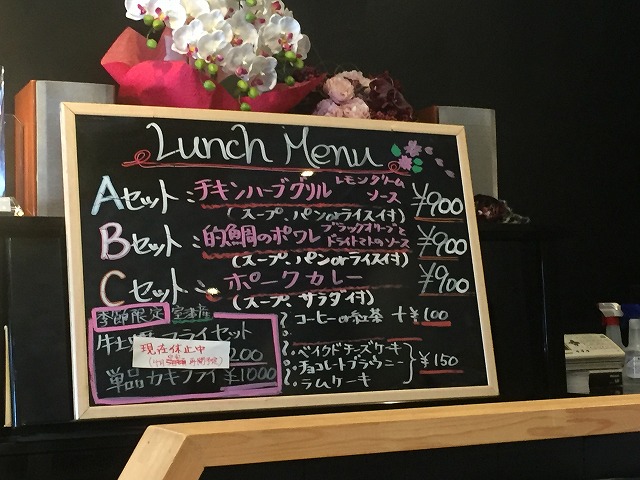 Lunch Menu
Aセット：チキンハーブグリル レモンクリームソース ¥900
(スープ、パンorライス付)
Bセット：的鯛のポワレ ブラックオリーブとドライトマトのソース ¥900
(スープ、パンorライス付)
Cセット：ポークカレー ¥900
(スープ、サラダ付)
季節限定
フライセット
現在休止中
200
単品カキフライ ¥1000
コーヒーor紅茶 +¥100
ベイクドチーズケーキ
チョコレートブラウニー ¥150
ラムケーキ